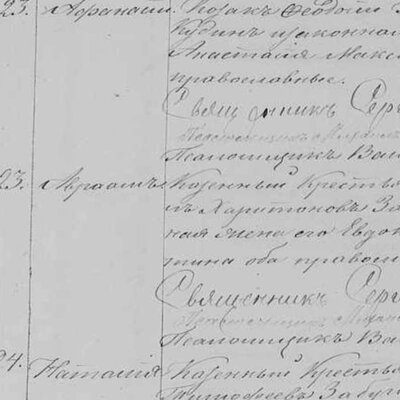 23. Афанасій. Козакъ Феодотъ
Кудинъ и законная
Анастасія Макс
православные.
Священникъ Серг
Псаломщикъ Вас
23. Авраамъ Казенный Крестья
нъ Харитоновъ За
ная жена его Евдок
оба правосл
Священникъ Серг
Псаломщикъ Вас
24. Наталія Казенный Крестья
Тимофеевъ Забуг